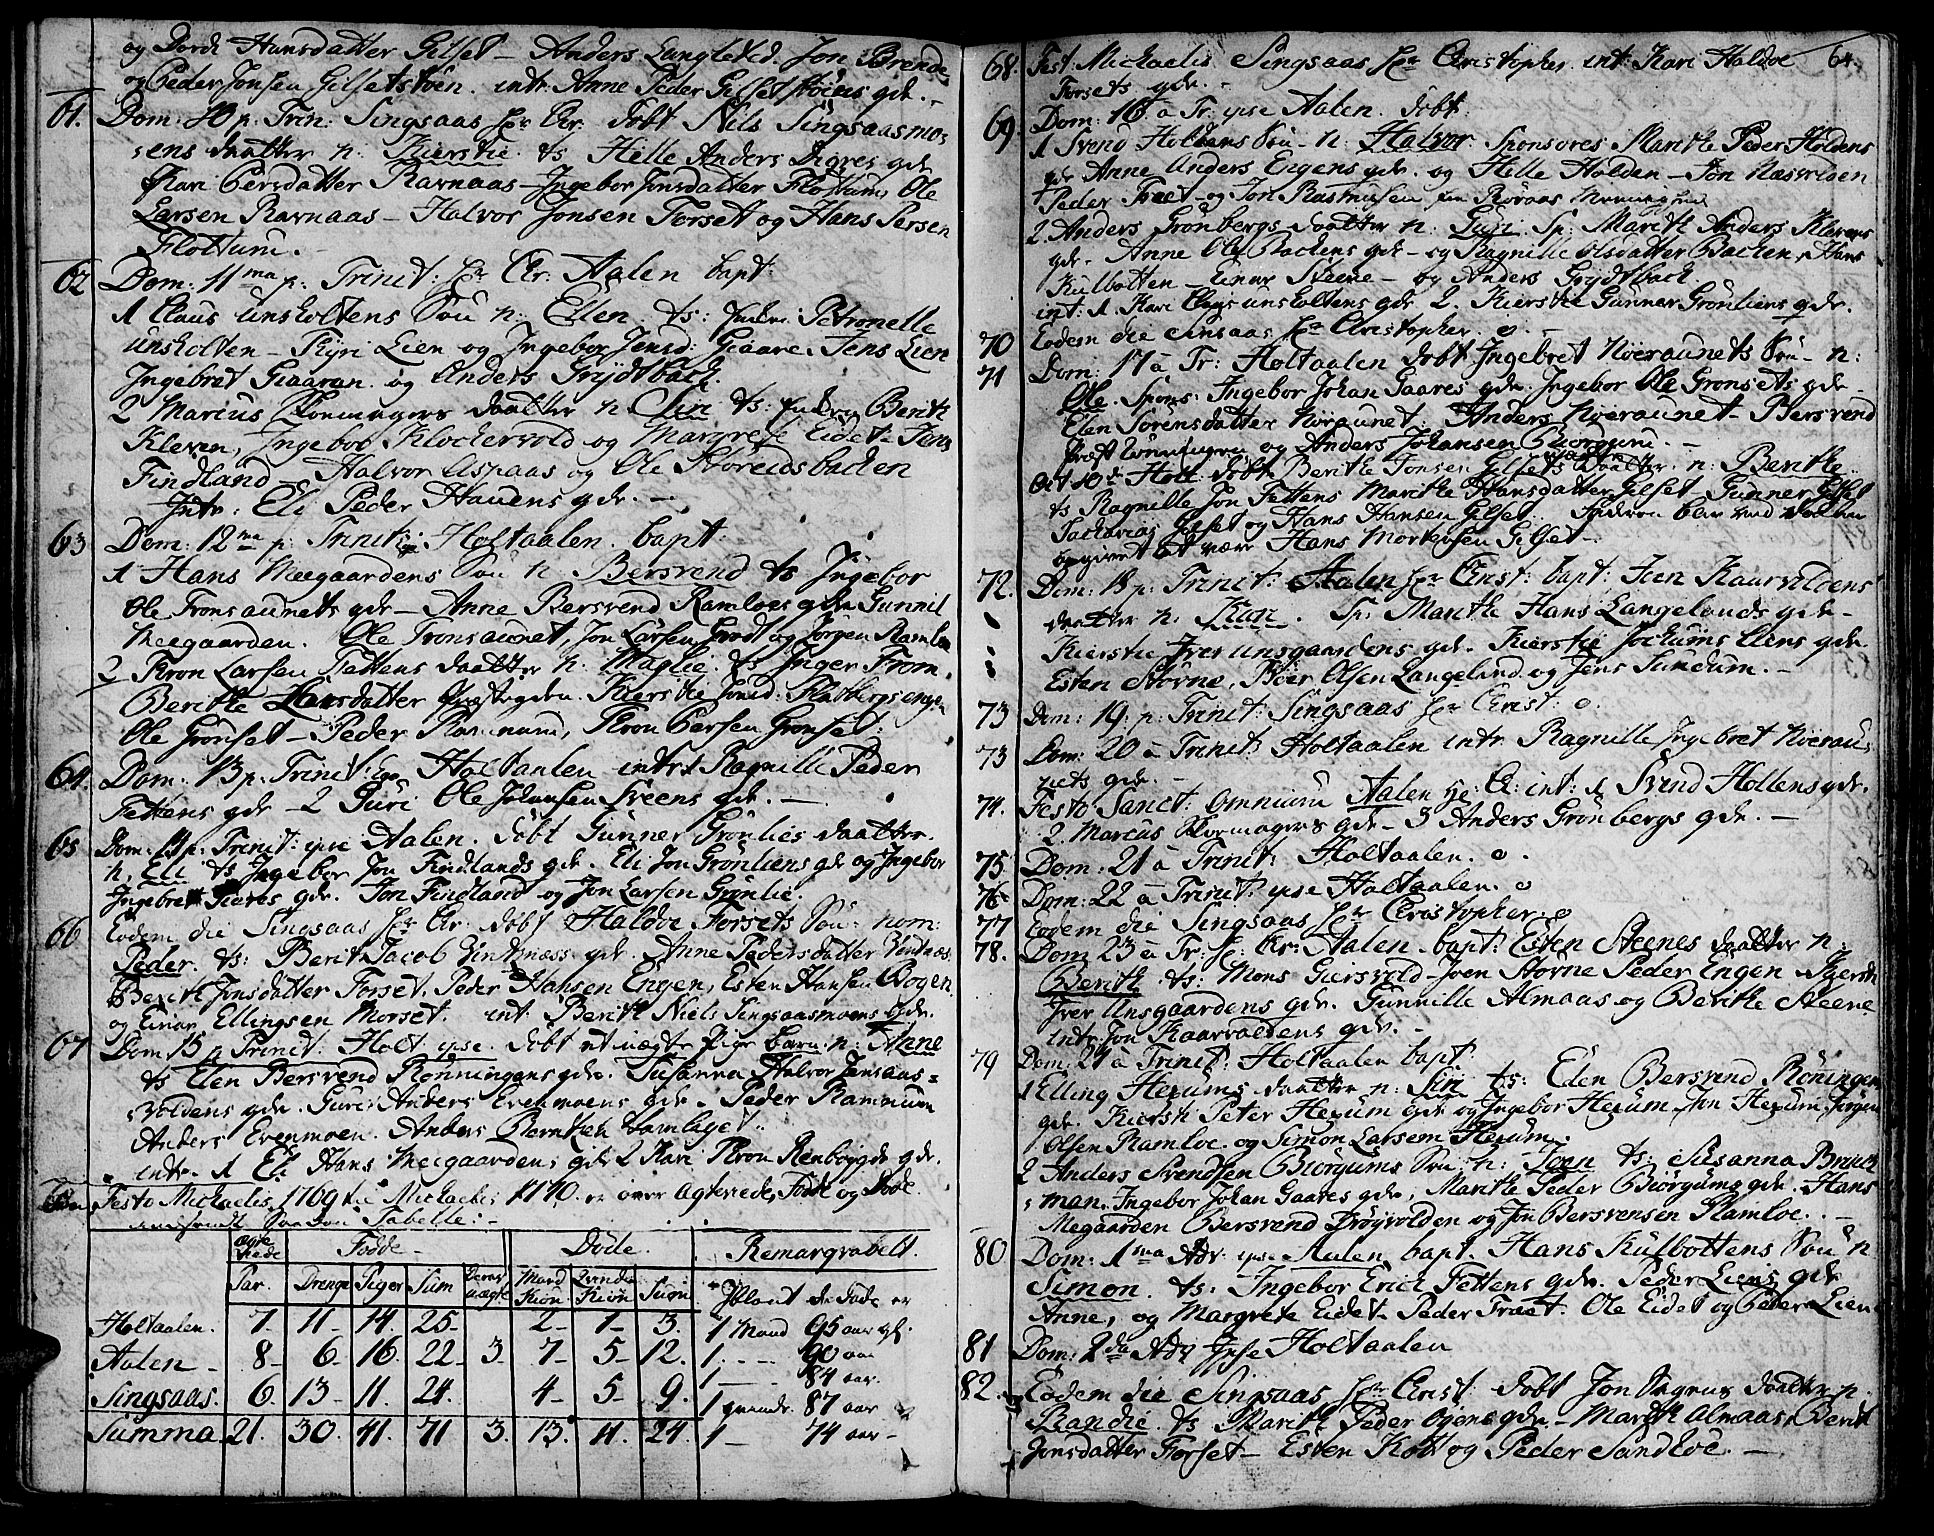 og Dordi Hansdatter Gilset – Anders Langleted. Jon Brende
og Peder Jonsen Gilsetstøen. intr. Anne Peder Gilsetstøens gdr.
61. Dom: 10 p: Trin: Singsaas pr Chr. døbt Nils Singsaasmo-
ens daatter n: Kierstie. ts Helle Anders Digres gdr
Kari Persdatter Ravnaas – Ingebor Jonsdatter Flottum, Ole
Larsen Ravnaas – Halvor Jonsen Forset og Hans Persen
Flottum.
62 Dom: 11ma p: Trinit: pr Chr. Aalen bapt:
1 Claus Unsholtens Søn n: Ellen. ts: Petronelle
Unsholten – Kyri Lien og Ingebor Jensd: Gaare. Jens Lien
Ingebret Gaaran og Anders Grydtback.
2 Marius Kormagers daatter n. Siri ts: Berith
Kleven, Ingebor Klockervold og Margrete Eidet – Jens
Findland – Halvor Aspaas og Ole Storeidsbacken
Intr: Eli Peder Hauens gdr. –
63 Dom: 12ma p: Trinit: Holtaalen. bapt
1 Hans Meegaardens Søn n. Bersvend ts Ingebor
Ole Tronsaunets gdr – Anne Bersvend Ramloes gdr Gunnil
Meegaarden. Ole Tronsaunet, Jon Larsen og Jørgen Ramloe
2 Tron Larsen Tettens daatter n. Maglie. ts Inger From.
Berithe Larsdatter Kierstie Jonsd: Flatbergsengen
Ole Grønset – Peder Ramnum, Tron Persen Grønset:
64. Dom: 13 p: Trinit: Holtaalen intr: 1 Ragnille Peder
Tettens gdr – 2 Guri Ole Johansen Sveens gdr. –
65 Dom: 14 p: Trinit: ipse Aalen. døbt Gunner Grønlies daatter
n. Eli ts Ingebor Jon Findlands gdr. Eli Jon Grønliens gdr og Ingebor
Ingebret Gaares gdr. Jon Findland og Jon Larsen Grønlie.
66 Eodem die Singsaas pr Chr. døbt Haldoe Forsets Søn nom:
Peder. ts: Berit Jacob gdr. Anne Pedersdatter
Berith Jonsdatter Forset. Peder Hansen Engen, Esten Hansen Bogen
og Einar Ellingsen Morset. int: Berith Niels Singsaasmoens gdr.
67 Dom 15 p Trinit: Holt ipse. døbt et uægte Pige barn n: Anne
ts Elen Bersvend Rønningens gdr. Susanna Halvor Jensaas-
voldens gdr. Guri Anders Evenmoens gdr – Peder Ramnum
Anders Evenmoen. Anders Berntsen
intr. 1 Eli Hans Meegaardens gdr 2 Kari Tron Renbygde gdr.
Festo Michaelis 1769 til Michaelis 1770. er over Agtevede, Fødde og Døde
Tabelle:
ægte viede Fødde Døde. Remarqvabelt.
Par. Drenge Piger Sum Deraf uægte Mand Kiøn Qvinde Kiøn Sum Iblant de døde er
Holtaalen. 7. 11 – 14. 25 – 2 – 1 – 3. 1 Mand 95 aar gl.
Aalen – 8 – 6 – 16. 22 – 3 – 7 – 5 – 12. 1. – 90 aar
Singsaas. 6. 13 – 11. 24. 4 – 5 9. 1 – 84 aar. 1 qvinde. 87 aar
Summa. 21. 30. 41. 71 3. 13. 11. 24. 1 – 74 aar –
64.
68. Fest: Michaelis Singsaas pr Christopher. int: Kari Haldoe
Forsets gdr. –
69. Dom: 16 a Tr: ipse Aalen. døbt
1 Svend Holdens Søn n: Halvor. Sponsores Marithe Peder Holdens
gdr Anne Anders Engens gdr. og Helle Holden – Jon Næsvolden
Peder Træet – og Jon Rasmusen fra Røraas Menighed
2 Anders Grønbergs daatter n: Guri Sp: Marith Anders Klevens
gdr – Anne Ole Backens gdr – og Ragnille Olsdatter Backen, Hans
Kulbotten – Einar Steene – og Anders Grydtback
int: 1. Kari Claus Unsholtens gdr 2. Kierstie Gunner Grønliens gdr.
70 Eodem die Sinsaas pr Christopher. o. –
71 Dom: 17 a Tr: Holtaalen døbt Ingebret Nøeraunets Søn – n:
Ole. Spons: Ingebor Johan Gaares gdr. Ingebor Ole Grønsets gdr –
Elen Sørensdatter Nøraunet. Anders Nøeraunet – Bersvend
Rønningen og Anders Johansen Biørgum. –
Oct 10d Holt døbt Berithe Jonsen Gilsets daatter. n: Berithe
ts Ragnille Jon Tettens Marithe Hansdatter Gilset Gunner Gilset
Zacharias Gilset og Hans Hansen Gilset.
opgivet at være Hans Mortensen Gilset –
72. Dom: 18 p: Trinit: Aalen pr Christ: bapt: Joen Kaarvoldens
daatter n: Kari. Sp: Marithe Hans Langelands gdr –
Kierstie Iver Unsgaardens gdr. Kierstie Jochums Liens gdr
Esten Størne, Boer Olsen Langeland og Jens Sundum. –
73 Dom: 19: p: Trinit: Singsaas pr Christ: o.
73 Dom: 20 a Trinit: Holtaalen intr. Ragnille Ingebret Nøerau-
nets gdr. –
74. Festo Sanct: Omnium Aalen int: 1 Svend Holdens gdr.
2. Marcus Kormagers gdr – 3 Anders Grønbergs gdr. –
75. Dom: 21 a Trinit: Holtaalen. o.
76 Dom: 22 a Trinit: ipse Holtaalen. o
77 Eodem die Singsaas pr Christopher. o
78. Dom 23 a Tr: pr Chr: Aalen. bapt: Esten Steenes daatter n:
Berith ts: Mons Giersvold – Joen Størne Peder Engen. Kiersti
Iver Unsgaardens gdr. Gunnille Almaas og Berithe Steene
intr: Jon Kaarvoldens gdr. –
79 Dom: 24 a Trinit: Holtaalen bapt
1 Elling Hexums daatter n: Siri ts: Elen Bersvend Røningens
gdr. Kiersti Peter Hexum gdr og Ingebor Hexum. Jon Hexum. Jørgen
Olsen Ramloe. og Simon Larsen Hexum.
2 Anders Svendsen Biørgums Søn n: Joen ts: Susanna Bruch-
man. Ingebor Johan Gaares gdr, Marithe Peder Biørgums gdr. Hans
Megaarden Bersvend Drøyvolden og Jon Bersvensen Ramloe. –
80 Dom: 1ma Adv. ipse Aalen bapt. Hans Kulbottens Søn n
Simon. ts: Ingebor Erich Tettens gdr. Peder Liens gdr
Anne, og Margrete Eidet – Peder Træet. Ole Eidet og Peder Lien.
81 Dom: 2da Adv – Ipse Holtaalen
82. Eodem die Singsaas pr Christ: døbt Jon daatter n.
Randie. ts Marith Peder Øyens gdr. – Marith Almaas, Berit
Jonsdatter Forset – Esten Kott og Peder Sandloe. –